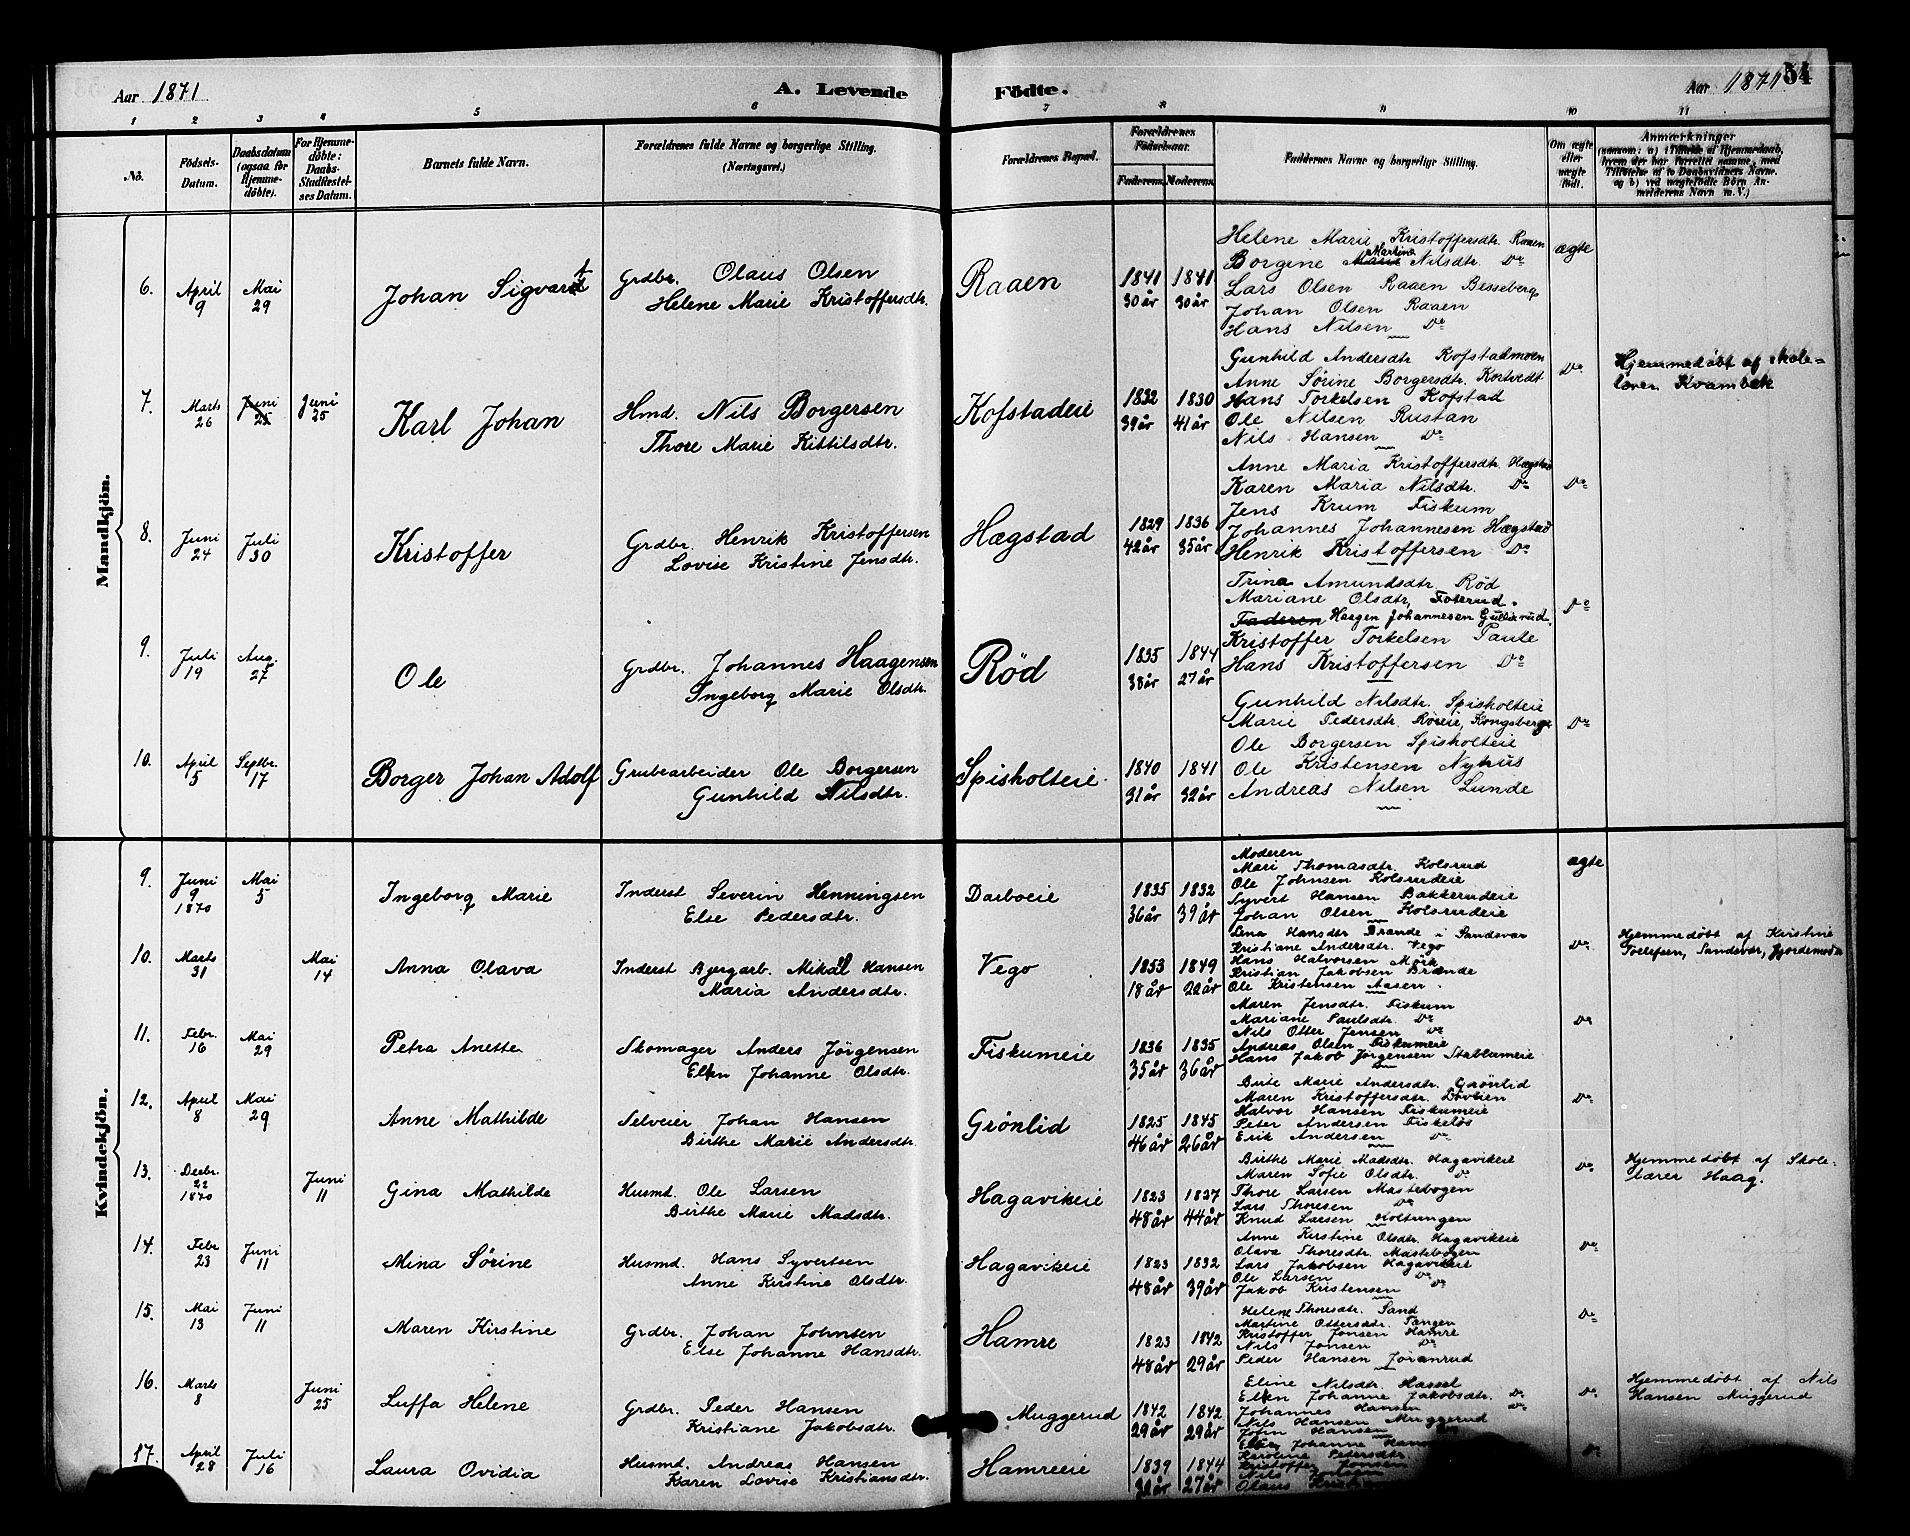 Aar 1871
A. Levende
Födte.
Aar 1871
54
1 2 3 4 5 6 7 8 9 10 11
No.
Födsels-Datum.
Daabsdatum (ogsaa for Hjemme-döbte).
For Hjemme-döbte: Daabs-Stadfæstel-ses Datum.
Barnets fulde Navn.
Forældrenes fulde Navne og borgerlige Stilling. (Næringsvei.)
Forældrenes Bopæl.
Forældrenes Födselsaar.
Faderens. Moderens.
Faddernes Navne og borgerlige Stilling.
Om ægte eller uægte födt.
Anmærkninger
(saasom: a) i Tilfælde af Hjemmedaab, hvem der har forrettet samme, med Tilföielse af to Daabsvidners Navne. og b) ved uægtefödte Börn An-melderens Navn m. V.)
Mandkjön.
6. April 9 Mai 29 Johan Sigvart Grdbr. Olaus Olsen
Helene Marie Kristoffersdtr. Raaen 1841 30 år 1841 30 år
Helene Marie Kristoffersdtr. Raaen ægte
Borgine Martine Nilsdtr. Do
Lars Olsen Raaen Besseberg
Johan Olsen Raaen
Hans Nilsen Do
7. Marts 26 Juni 25 Juni 25 Karl Johan Hmd. Nils Borgersen
Thore Marie Kittilsdtr. Kofstadeie 1832 39 år 1830 41 år
Gunhild Andersdtr Kofstadmoen Do Hjemmedøbt af Skole-
Anne Sørine Borgersdtr. Kortvedt lærer Kvambæk
Hans Torkelsen Kofstad
Ole Nilsen Rustan
Nils Hansen Do
8. Juni 24 Juli 30 Kristoffer Grdbr. Henrik Kristoffersen
Lovise Kristine Jensdtr. Hægstad 1829 42 år 1836 35 år
Anne Maria Kristoffersdtr. Hægstad
Karen Maria Nilsdtr. Do Do
Jens Krum Fiskum
Johannes Johannesen Hægstad
Henrik Kristoffersen Do
9. Juli 19 Aug. 27 Ole Grdbr. Johannes Haagensen
Ingeborg Marie Olsdtr. Rød 1835 38 år 1844 27 år
Trina Amundsdtr Rød
Mariane Olsdtr, Foterud. Do
Faderen Haagen Johannesen Gullixrud.
Kristoffer Torkelsen Taule
Hans Kristoffersen Do
10. April 5 Septbr. 17 Borger Johan Adolf Grubearbeider Ole Borgersen
Gunhild Nilsdtr. Spisholteie 1840 31 år 1841 32 år
Gunhild Nilsdtr. Spisholteie
Marie Pedersdtr. Røreie, Kongsberg Do
Ole Borgersen Spisholteie
Ole Kristensen Nyhus
Andreas Nilsen Lunde
Kvindekjön.
9. Juni 9 1870 Mai 5 Ingeborg Marie Inderst Severin Henningsen
Else Pedersdtr. Darboeie 1835 36 år 1832 39 år
Moderen ægte
Mari Thomasdtr Kolsrud
Ole Johnsen Kolsrudeie
Syvert Hansen Bakkerudeie
Johan Olsen Kolsrudeie
10. Marts 31 Mai 14 Anna Olava Inderst Bjergarb. Mikal Hansen
Maria Andersdtr. Vego 1853 18 år 1849 22 år
Lena Hansdtr Brænde i Sandsvær
Kristiane Andersdtr. Vego Do Hjemmedøbt af Kristine
Hans Halvorsen Mørk Tollefsen, Sandsvær, Gjordemoder
Kristian Jakobsen Brænde
Ole Kristensen Aasen
11. Febr. 16 Mai 29 Petra Anette Skomager Anders Jørgensen
Elken Johanne Olsdtr. Fiskumeie 1836 35 år 1835 36 år
Maren Jensdtr. Fiskum
Mariane Paulsdtr. Do Do
Nils Otter Jensen Do
Andreas Olsen Fiskumeie
Hans Jakob Jørgensen Stablumeie
12. April 8 Mai 29 Anne Mathilde Selveier Johan Hansen
Birthe Marie Andersdtr. Grønlid 1825 46 år 1845 26 år
Birte Marie Andersdtr. Grønlid
Maren Kristoffersdtr. Do
Halvor Hansen Fiskumeie
Peter Andersen Fiskeløs
Erik Andersen Do
13. Decbr. 22 1870 Juni 11 Gina Mathilde Husmd. Ole Larsen
Birthe Marie Madsdtr. Hagavikeie 1823 48 år 1827 44 år
Birthe Marie Madsdtr. Hagavikeie Do Hjemmedøbt af Skole-
Maren Sofie Olsdtr. Do lærer Haag.
Thore Larsen Mastebogen
Lars Thoresen Do
Knud Larsen Holtungen
14. Febr 23 Juni 11 Mina Sørine Husmd. Hans Syvertsen
Anne Kirstine Olsdtr. Hagavikeie 1823 48 år 1832 39 år
Anne Kirstine Olsdtr. Hagavikeie Do
Olava Thoresdtr. Mastebogen
Lars Jakobsen Hagavikeie
Ole Larsen Do
Jakob Kristensen Do
15. Mai 13 Juni 11 Maren Kirstine Grdbr. Johan Johnsen
Else Johanne Hansdtr. Hamre 1823 48 år 1842 29 år
Helene Thoresdtr. Sand Do
Martine Ottersdtr. Tangen
Kristoffer Jonsen Hamre
Nils Jonsen Do
Peder Hansen Jøranrud
16. Marts 8 Juni 25 Luffa Helene Grdbr. Peder Hansen
Kristiane Jakobsdtr. Muggerud 1842 29 år 1842 29 år
Eline Nilsdtr. Hassel Hjemmedøbt af Nils
Elken Johanne Jakobsdtr. Do Do Hansen Muggerud
Johannes Hansen Do
Nils Hansen Muggerud
John Hansen
17. April 28 Juli 16 Laura Ovidia Husmd. Andreas Hansen
Karen Lovise Kristiansdtr. Hamreeie 1839 32 år 1844 27 år
Johanne Do
Karoline Pedersdtr
Kristoffer Jonsen
Nils
Olaus